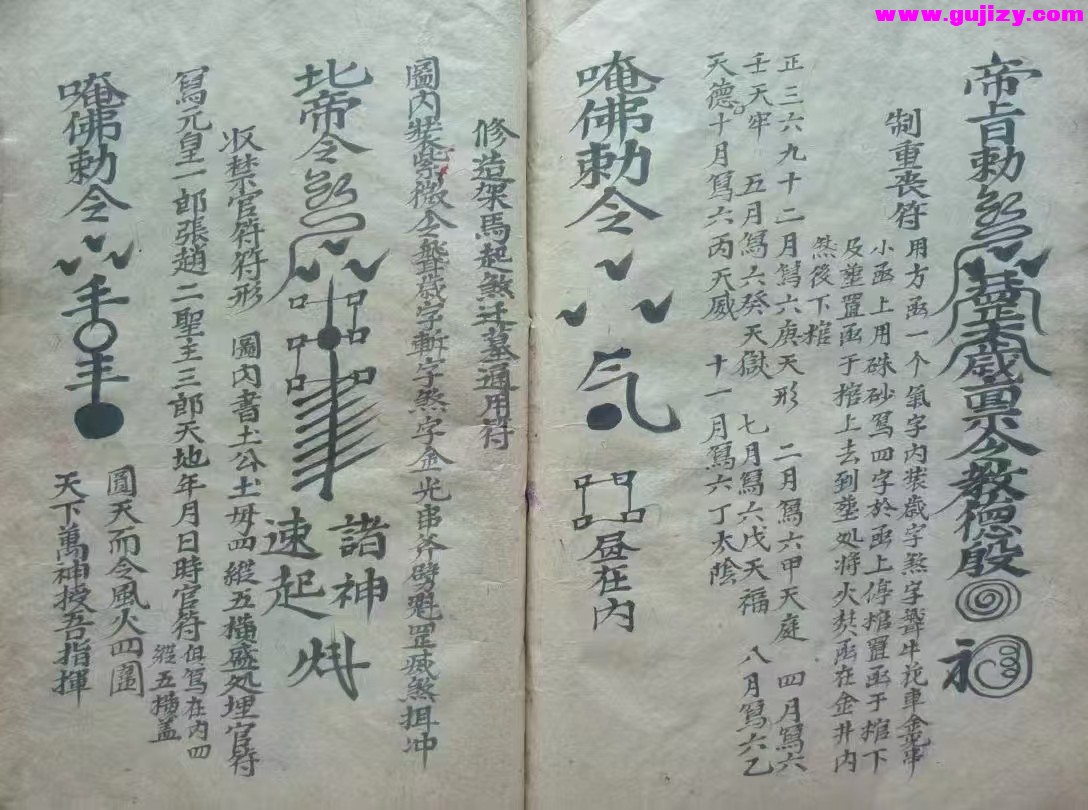 www.gujizy.com
帝旨勅 歲 令教德殷
制重丧符
用方函一个氣字内裝歲字煞字聻牛 車金光串
小函上用硃砂寫四字於函上停棺置函于棺下
及塟置函于棺上去到塟処将火焚函在金井内
然後下棺
正三六九十二月寫六庚天形 二月寫六甲天庭 四月寫六
壬天牢 五月寫六癸天獄 七月寫六戊天福 八月寫六乙
天德 十月寫六丙天威 十一月寫六丁太陰
唵佛勅令 气 昼在内
修造架馬起煞迁墓通用符
圖内裝紫微令聻歲字斬字煞字金光串斧劈魁罡滅煞 冲
北帝令
諸神
速起
收禁官符符形 圖内書土公土母四縱五横盛処埋官符
寫元皇一郎張趙二聖主三郎天地年月日時官符俱寫在内四
縱五横盖
唵佛勅令
圓天而令風火四圍
天下萬神授吾指揮